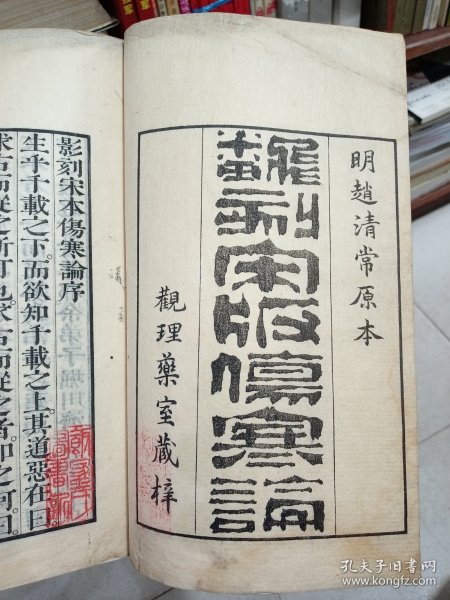 明趙清常原本
飜刻宋版傷寒論
觀理藥室藏梓
影刻宋本傷寒論序
生乎千載之下。而欲知千載之上。其道惡在。曰。
求古而從之斯可也。求古而從之者。即之何。曰。
孔夫子旧书网
www.kongfz.com